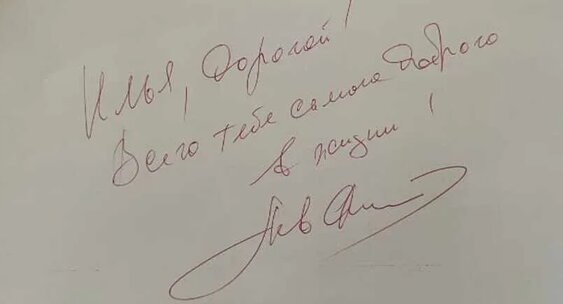 Илья, Дорогой!
Всего тебе самого доброго
в жизни!